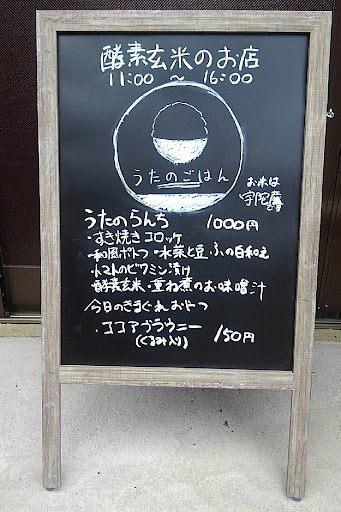 酵素玄米のお店
11:00 ~ 16:00
うたのごはん
お米は
宇陀産
うたのらんち 1000円
・すき焼きコロッケ
・和風ポトフ・水菜と豆ふの白和え
・トマトのビタミン漬け
・酵素玄米・重ね煮のお味噌汁
今日のきまぐれおやつ
・ココアブラウニー 150円
(くるみ入り)